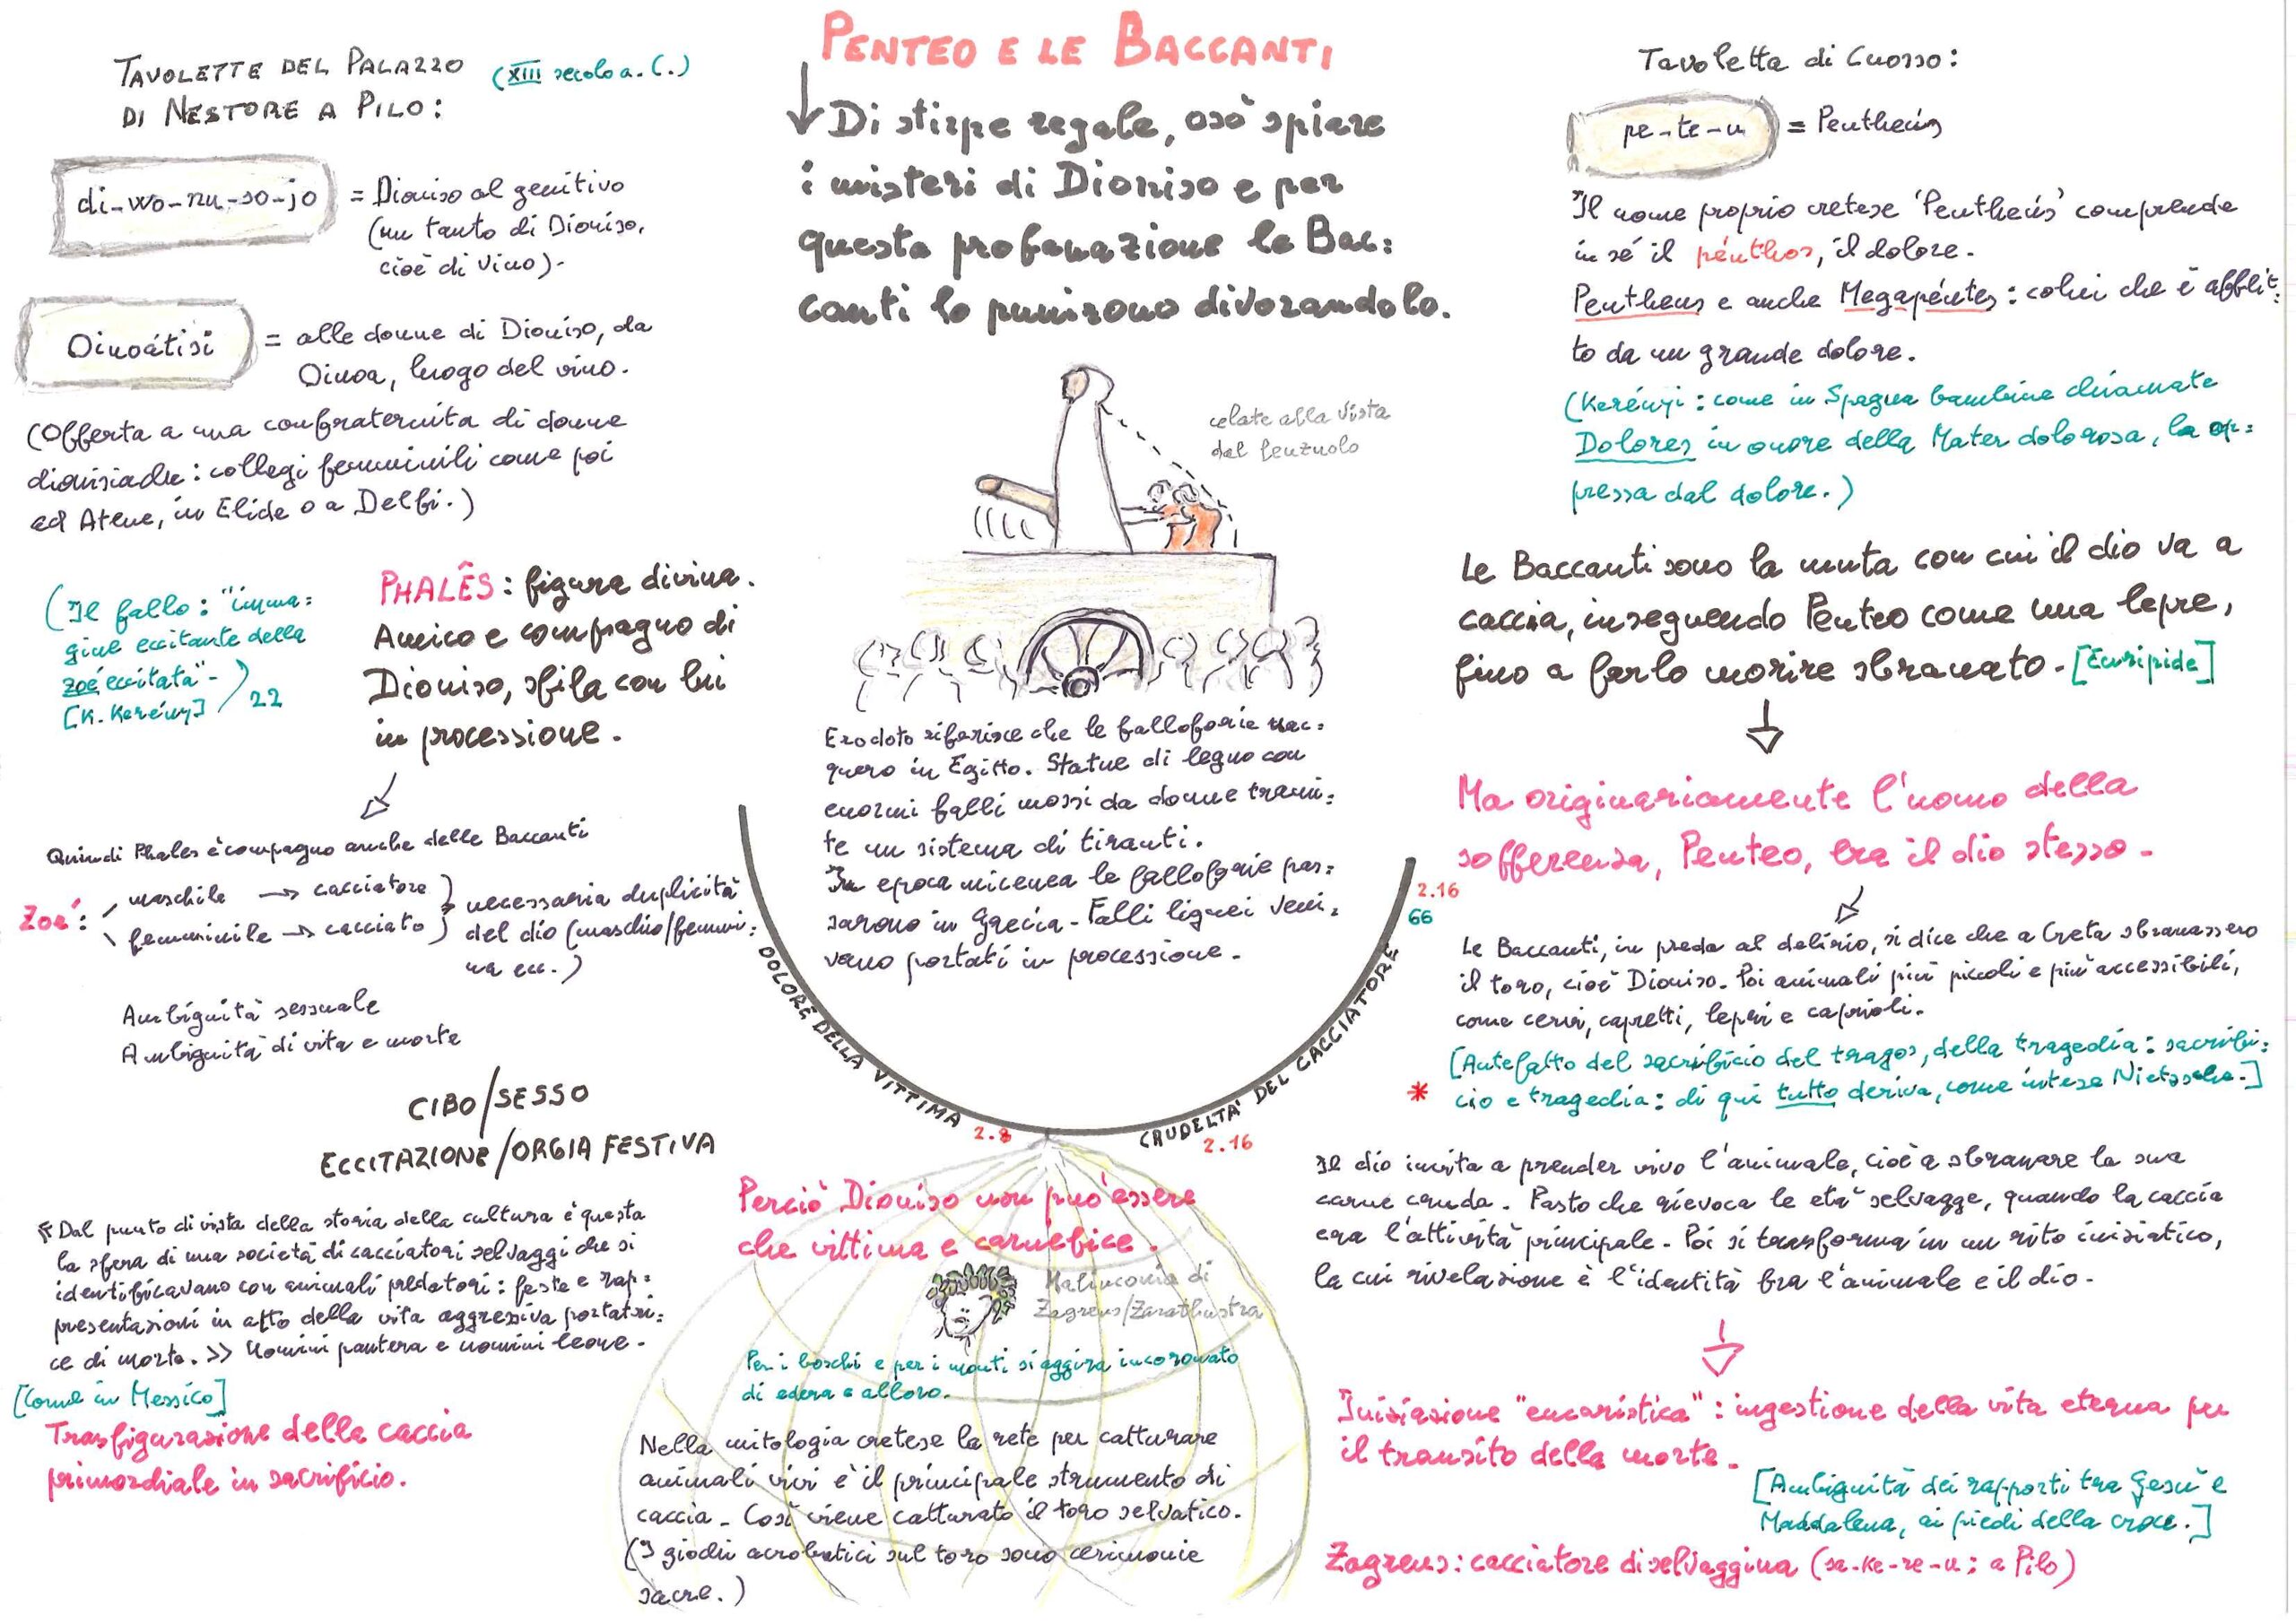 PENTEO E LE BACCANTI
Di stirpe regale, osò spiare
i misteri di Dioniso e per
questa profanazione le Bac=
canti lo punirono divorandolo.
TAVOLETTE DEL PALAZZO (XIII secolo a.C.)
DI NESTORE A PILO:
di-wo-nu-so-jo = Dioniso al genitivo
(un tanto di Dioniso,
cioè di vino)-
Oinoátisi = alle donne di Dioniso, da
Oinoa, luogo del vino.
(Offerta a una confraternita di donne
dionisiache: collegi femminili come poi
ad Atene, in Elide o a Delfi.)
(Il fallo: "imma=
gine eccitante della
zoé eccitata"-)
[K. Kerényi] 22
PHALÊS: figura divina.
Amico e compagno di
Dioniso, sfila con lui
in processione.
Quindi Phales è compagno anche delle Baccanti
Zoé:
maschile → cacciatore
femminile → cacciato
necessaria duplicità
del dio (maschio/femmi=
na ecc.)
Ambiguità sessuale
Ambiguità di vita e morte
CIBO/SESSO
ECCITAZIONE/ORGIA FESTIVA
«Dal punto di vista della storia della cultura è questa
la sfera di una società di cacciatori selvaggi che si
identificavano con animali predatori: feste e rap=
presentazioni in atto della vita aggressiva portatri=
ce di morte.» Uomini pantera e uomini leone-
[Come in Messico]
Trasfigurazione della caccia
primordiale in sacrificio.
celate alla vista
dal lenzuolo
Erodoto riferisce che le falloforie nac=
quero in Egitto. Statue di legno con
enormi falli mossi da donne trami=
te un sistema di tiranti.
In epoca micenea le falloforie pas=
sarono in Grecia- Falli lignei veni=
vano portati in processione-
DOLORE DELLA VITTIMA 2.8
CRUDELTA' DEL CACCIATORE
2.16
2.16
66
Perciò Dioniso non può essere
che vittima e carnefice.
Malinconia di
Zagreus/Zarathustra
Per i boschi e per i monti si aggira incoronato
di edera e alloro.
Nella mitologia cretese la rete per catturare
animali vivi è il principale strumento di
caccia- Così viene catturato il toro selvatico.
(I giochi acrobatici sul toro sono cerimonie
sacre.)
Tavoletta di Cnosso:
pe-te-u = Pentheús
"Il nome proprio cretese 'Pentheús' comprende
in sé il pénthos, il dolore.
Pentheus e anche Megapéntes: colui che è afflit=
to da un grande dolore.
(Kerényi: come in Spagna bambine chiamate
Dolores in onore della Mater dolorosa, la op=
pressa dal dolore.)
Le Baccanti sono la muta con cui il dio va a
caccia, inseguendo Penteo come una lepre,
fino a farlo morire sbranato- [Euripide]
Ma originariamente l'uomo della
sofferenza, Penteo, era il dio stesso-
Le Baccanti, in preda al delirio, si dice che a Creta sbranassero
il toro, cioè Dioniso. Poi animali più piccoli e più accessibili,
come cervi, capretti, lepri e caprioli.
[Antefatto del sacrificio del tragos, della tragedia: sacrifi=
* cio e tragedia: di qui tutto deriva, come intese Nietzsche.]
Il dio invita a prender vivo l'animale, cioè a sbranare la sua
carne cruda. Pasto che rievoca le età selvagge, quando la caccia
era l'attività principale- Poi si trasforma in un rito iniziatico,
la cui rivelazione è l'identità fra l'animale e il dio-
Iniziazione "eucaristica": ingestione della vita eterna per
il transito della morte-
[Ambiguità dei rapporti tra Gesù e
Maddalena, ai piedi della croce.]
Zagreus: cacciatore di selvaggina (sa-ke-re-u; a Pilo)